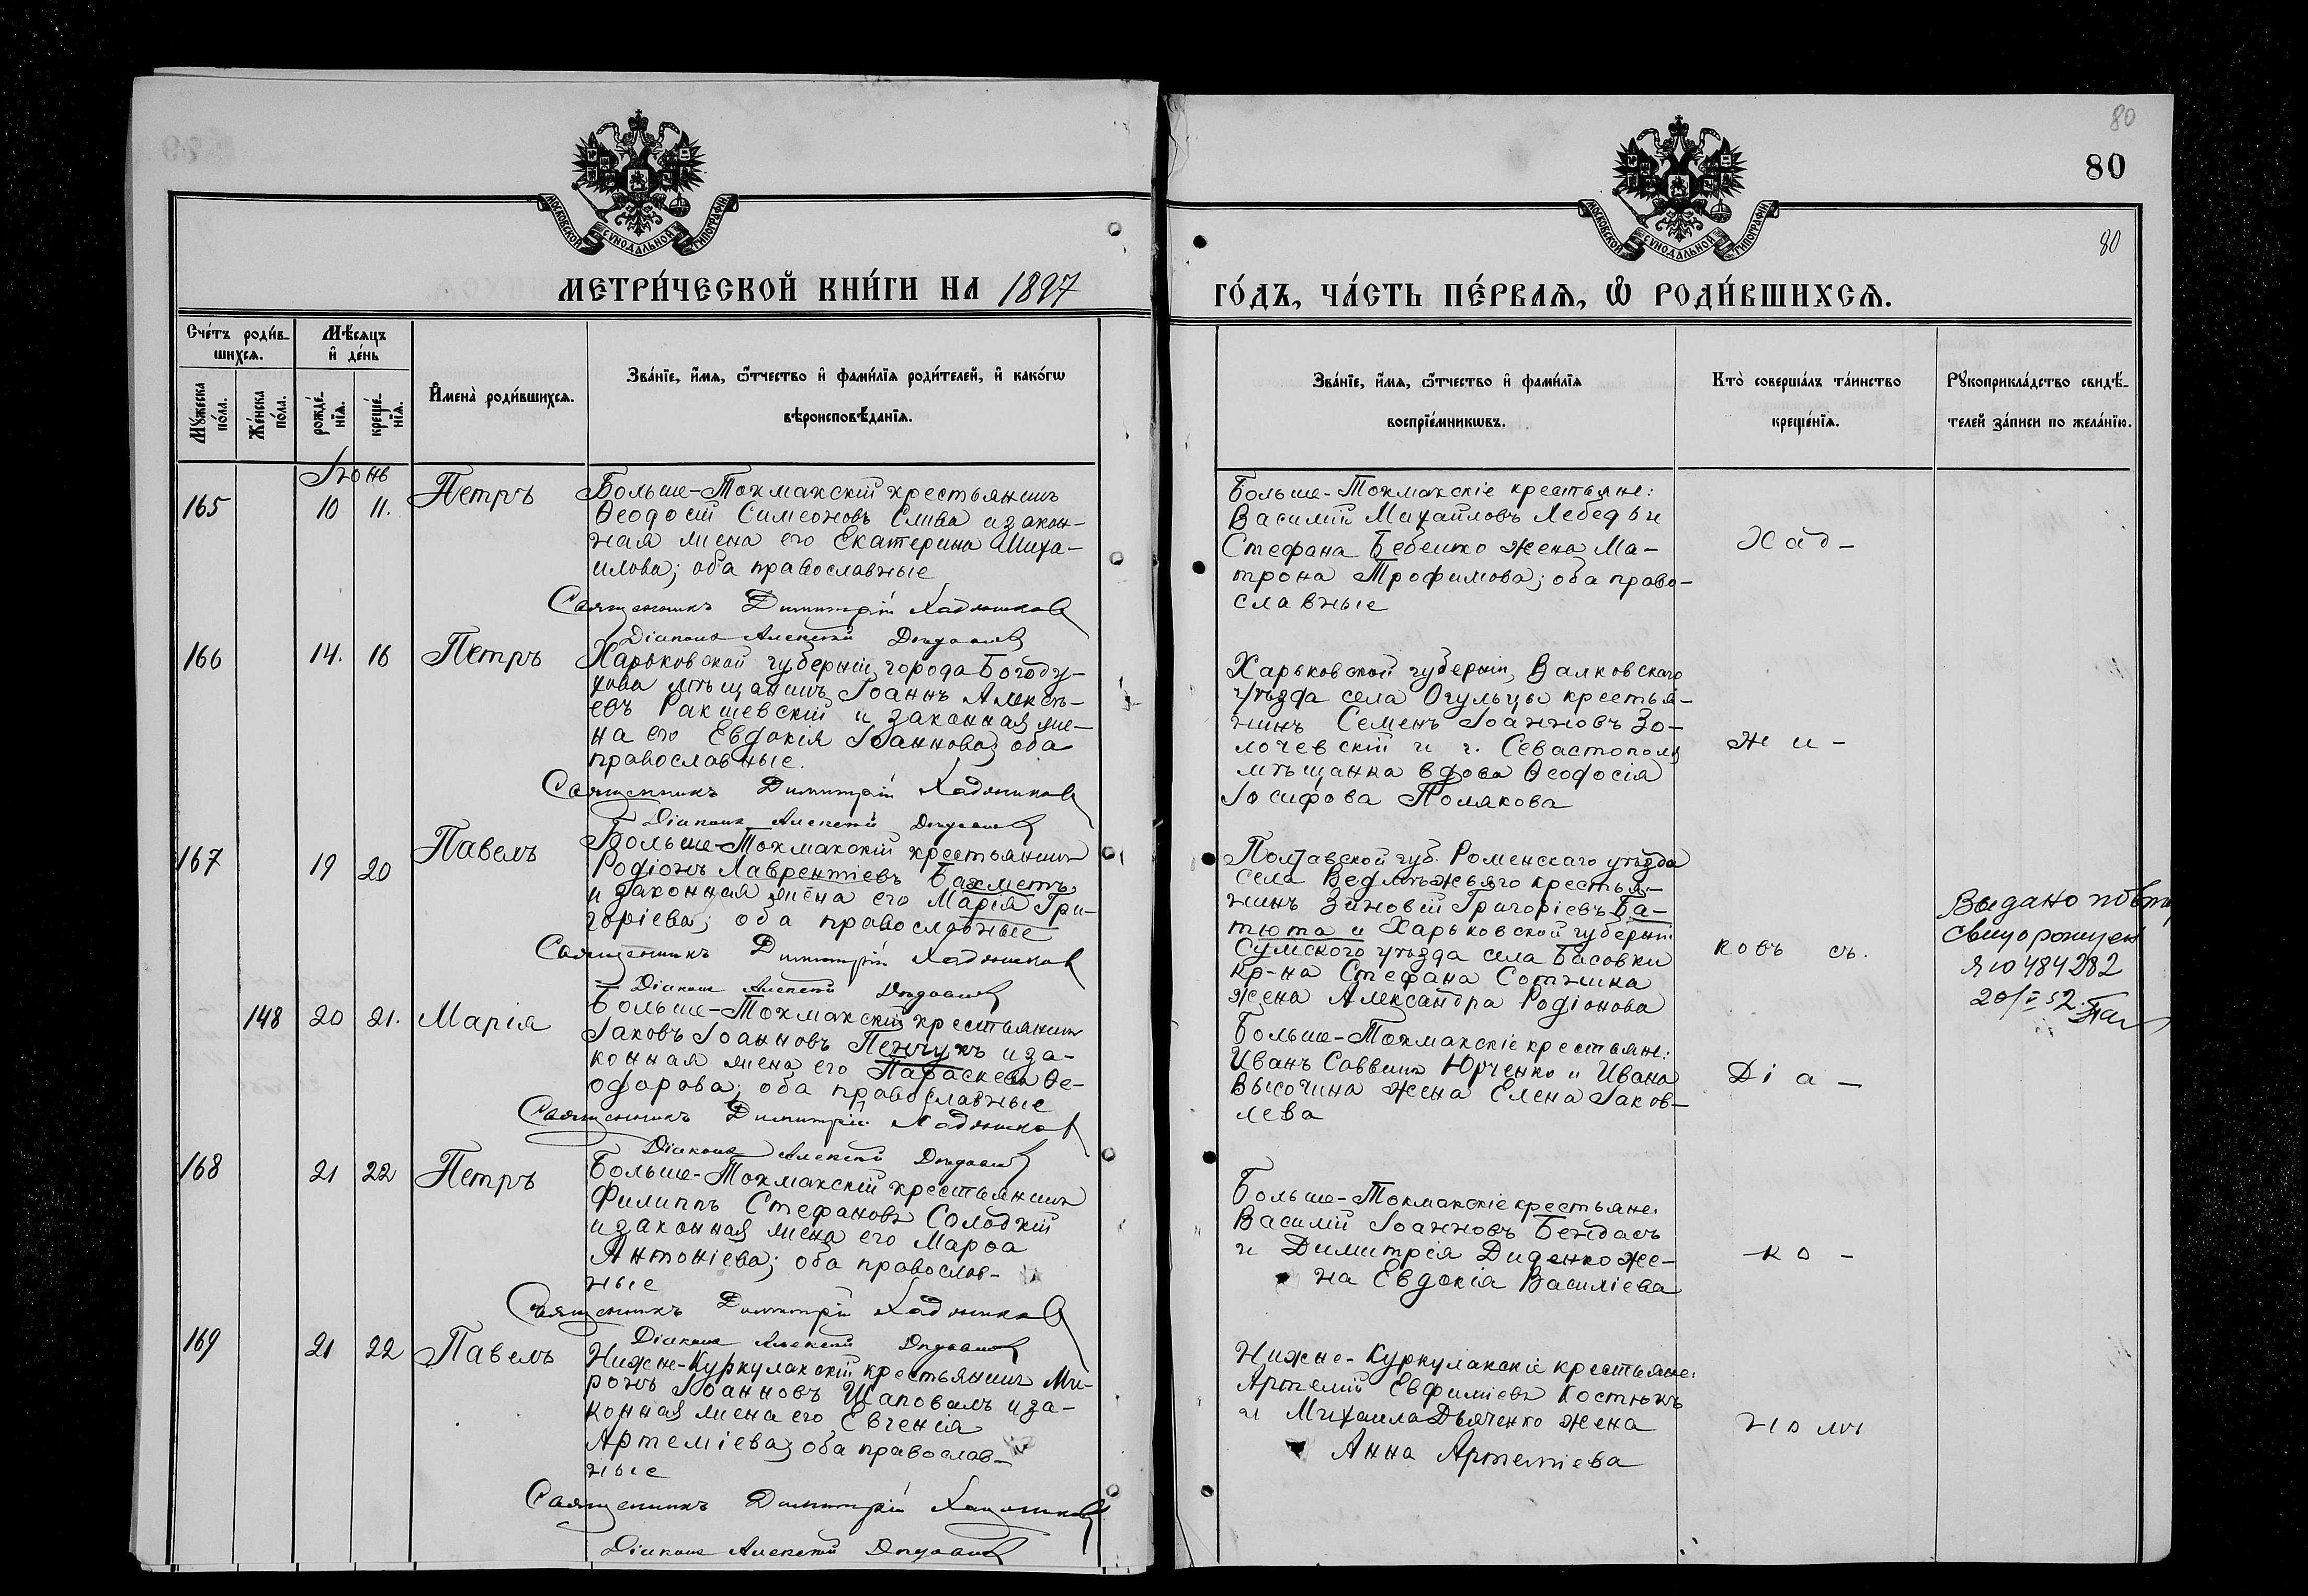 80
80
80
МОСКОВСКОЙ СѴНОДАЛЬНОЙ ТИПОГРАФІИ
МОСКОВСКОЙ СѴНОДАЛЬНОЙ ТИПОГРАФІИ
МЕТРИ́ЧЕСКОЙ КНИ́ГИ НА 1897
ГО́ДЪ, ЧА́СТЬ ПЕ́РВАЯ, Ѡ҆ РОДИ́ВШИХСЯ.
Сче́тъ роди́в-
шихся.
Мѣ́сяцъ
и҆ де́нь
Мꙋ́жеска
по́ла.
Же́нска
по́ла.
рожде́-
нїя.
креще́-
нїя.
И҆мена̀ роди́вшихся.
Зва́нїе, и҆́мя, ѻ҆́тчество и҆ фами́лїя роди́телей, и҆ како́гѡ
вѣроисповѣ́данїя.
Зва́нїе, и҆́мя, ѻ҆́тчество и҆ фами́лїя
воспрїе́мникѡвъ.
Кто̀ соверша́лъ та́инство
креще́нїя.
Рꙋкоприкла́дство свидѣ́-
телей за́писи по жела́нїю.
Іюнь
165
10 11.
Петръ
Больше-Токмакскій крестьянинъ
Ѳеодосій Симеоновъ Слива и закон-
ная жена его Екатерина Миха-
илова; оба православные
Священникъ Димитрій Хадживковъ
Діаконъ Алексій
Больше-Токмакскіе крестьяне:
Василій Михайловъ Лебедь и
Стефана Бебешко жена Ма-
трона Трофимова; оба право-
славные
Хад-
166
14. 16
Петръ
Харьковской губерніи, города Богоду-
хова мѣщанинъ Іоаннъ Алексѣ-
евъ Ракшевскій и законная же-
на его Евдокія Іоаннова; оба
православные.
Священникъ Димитрій
Діаконъ Алексій
Харьковской губерніи, Валковскаго
уѣзда села Огульцы крестья-
нинъ Семенъ Іоанновъ Зо-
лочевскій и г. Севастополя
мѣщанка вдова Ѳеодосія
Іосифова Полякова
жи-
167
19 20
Павелъ
Больше-Токмакскій крестьянинъ
Родіонъ Лаврентіевъ Бахметъ
и законная жена его Марія Гри-
горіева; оба православные
Священникъ Димитрій
Діаконъ Алексій
Полтавской губ. Роменскаго уѣзда
села Ведмѣжьяго крестья-
нинъ Зиновій Григоріевъ Ба-
тюта и Харьковской губерніи
Сумскаго уѣзда села Басовки
кр-на Стефана Сотника
жена Александра Родіонова
ковъ съ.
Выдано повтор
свид о рожден
ЯЮ 484282
20/I 52.
148
20 21.
Марія
Больше-Токмакскій крестьянинъ
Іаковъ Іоанновъ Пенчукъ и за-
конная жена его Параскева Ѳе-
одорова; оба православные
Священникъ Димитрій
Діаконъ Алексій
Больше-Токмакскіе крестьяне:
Иванъ Саввинъ Юрченко и Ивана
Высочина жена Елена Іаков-
лева
Діа-
168
21 22
Петръ
Больше-Токмакскій крестьянинъ
Филиппъ Стефановъ Солодкій
и законная жена его Марѳа
Антоніева; оба православ-
ные
Священникъ Димитрій
Діаконъ Алексій
Больше-Токмакскіе крестьяне.
Василій Іоанновъ Бендасъ
и Димитрія Диденко же-
на Евдокія Василіева
-ко-
169
21 22
Павелъ
Нижне-Куркулакскій крестьянинъ Ми-
ронъ Іоанновъ Шаповалъ и за-
конная жена его Евгенія
Артеміева; оба православ-
ные
Священникъ Димитрій
Діаконъ Алексій
Нижне-Куркулакскіе крестьяне:
Артемій Евфиміевъ Костюкъ
и Михаила Дьяченко жена
Анна Артеміева
номъ